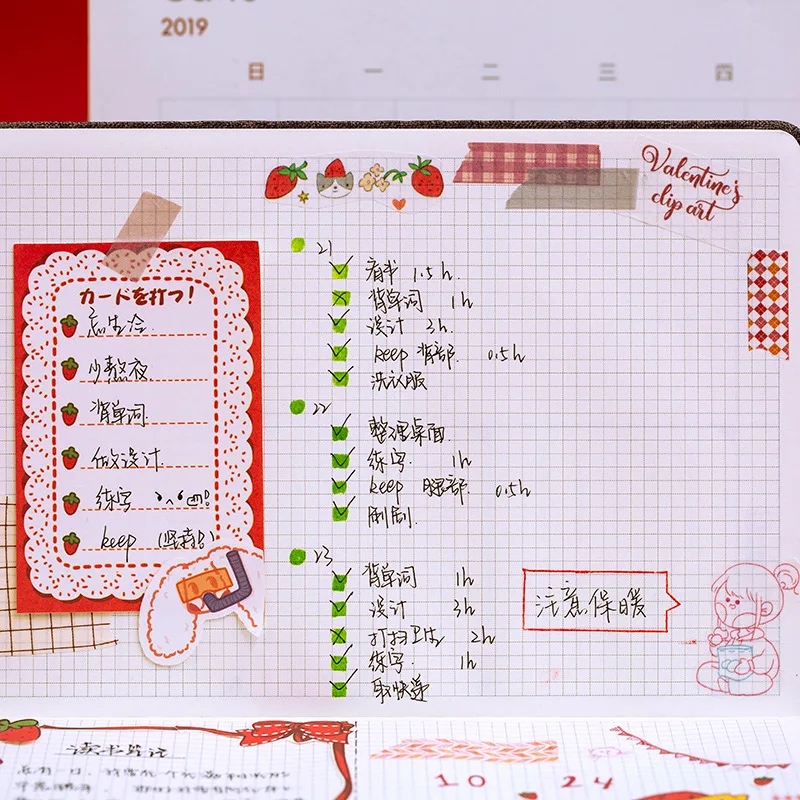 2019
日 一 二 三 四
Valentine's
clip art
カードを打つ!
忌生冷
少熬夜
背单词
做设计
练字
keep (坚持!)
21
看书 1.5h.
背单词 1h
设计 2h.
keep 背部. 0.5h
洗衣服
22
整理桌面.
练字. 1h
keep 腿部. 0.5h
刷剧.
23
背单词 1h
设计 3h
打扫卫生 2h
练字. 1h
取快递
注意保暖
读书笔记
10 24